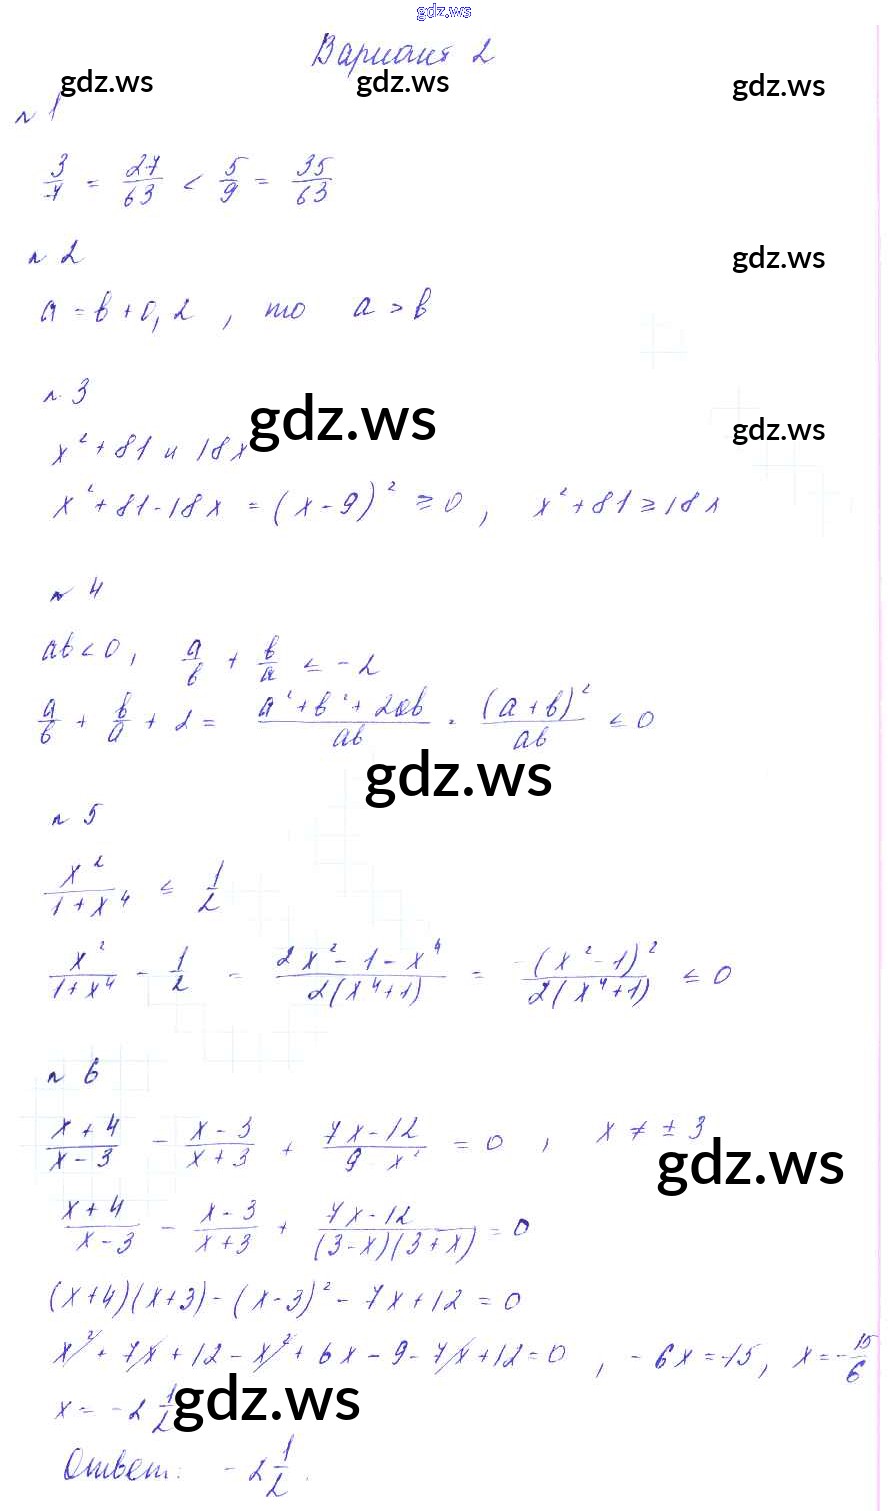 gdz.ws
Вариант 2
gdz.ws gdz.ws gdz.ws
№ 1
3/7 = 27/63 < 5/9 = 35/63
№ 2
gdz.ws
a = b + 0,2 , то a > b
№ 3
gdz.ws gdz.ws
x² + 81 и 18x
x² + 81 - 18x = (x - 9)² ≥ 0 , x² + 81 ≥ 18x
№ 4
ab < 0 , a/b + b/a ≤ -2
a/b + b/a + 2 = (a² + b² + 2ab)/ab = (a + b)²/ab ≤ 0
gdz.ws
№ 5
x²/(1 + x⁴) ≤ 1/2
x²/(1 + x⁴) - 1/2 = (2x² - 1 - x⁴)/(2(x⁴ + 1)) = -(x² - 1)²/(2(x⁴ + 1)) ≤ 0
№ 6
(x + 4)/(x - 3) - (x - 3)/(x + 3) + (7x - 12)/(9 - x²) = 0 , x ≠ ± 3
gdz.ws
(x + 4)/(x - 3) - (x - 3)/(x + 3) + (7x - 12)/((3 - x)(3 + x)) = 0
(x + 4)(x + 3) - (x - 3)² - 7x + 12 = 0
x² + 7x + 12 - x² + 6x - 9 - 7x + 12 = 0 , - 6x = -15 , x = -15/6
x = -2 1/2
gdz.ws
Ответ: -2 1/2.